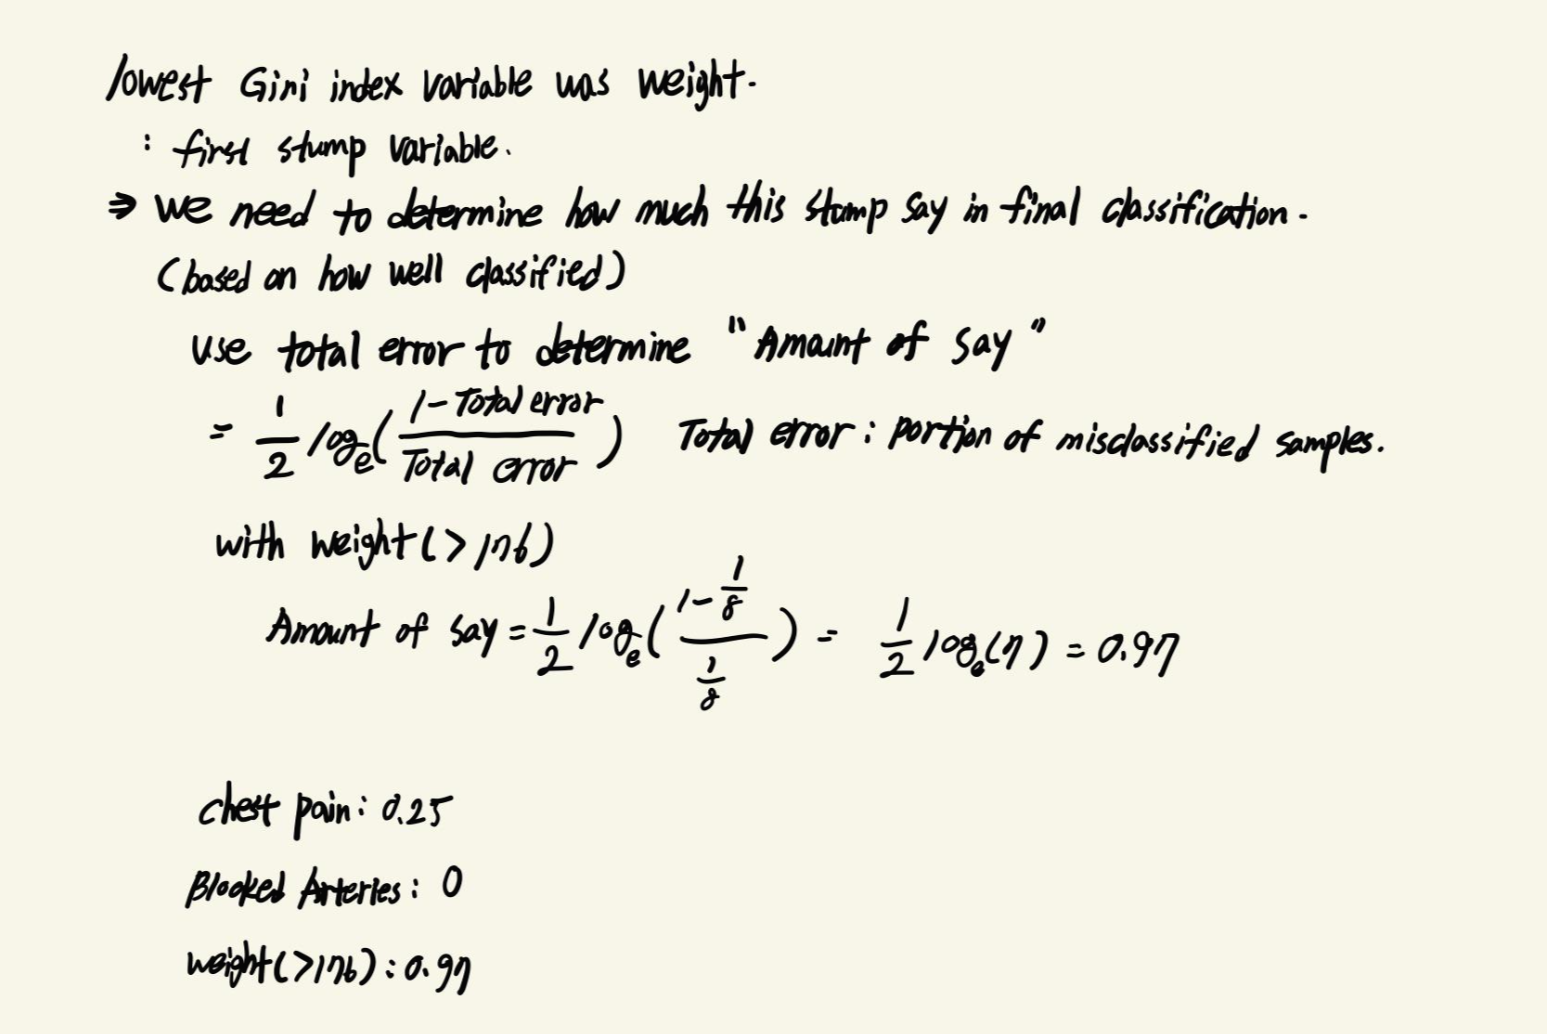 lowest Gini index variable was weight.
: first stump variable.
⇒ we need to determine how much this stump say in final classification.
(based on how well classified)
use total error to determine "Amount of say"
= 1/2 log_e( (1 - Total error) / Total error ) Total error : portion of misclassified samples.
with weight(>176)
Amount of say = 1/2 log_e( (1 - 1/8) / (1/8) ) = 1/2 log_e(7) = 0.97
chest pain : 0.25
Blocked Arteries : 0
weight(>176) : 0.97